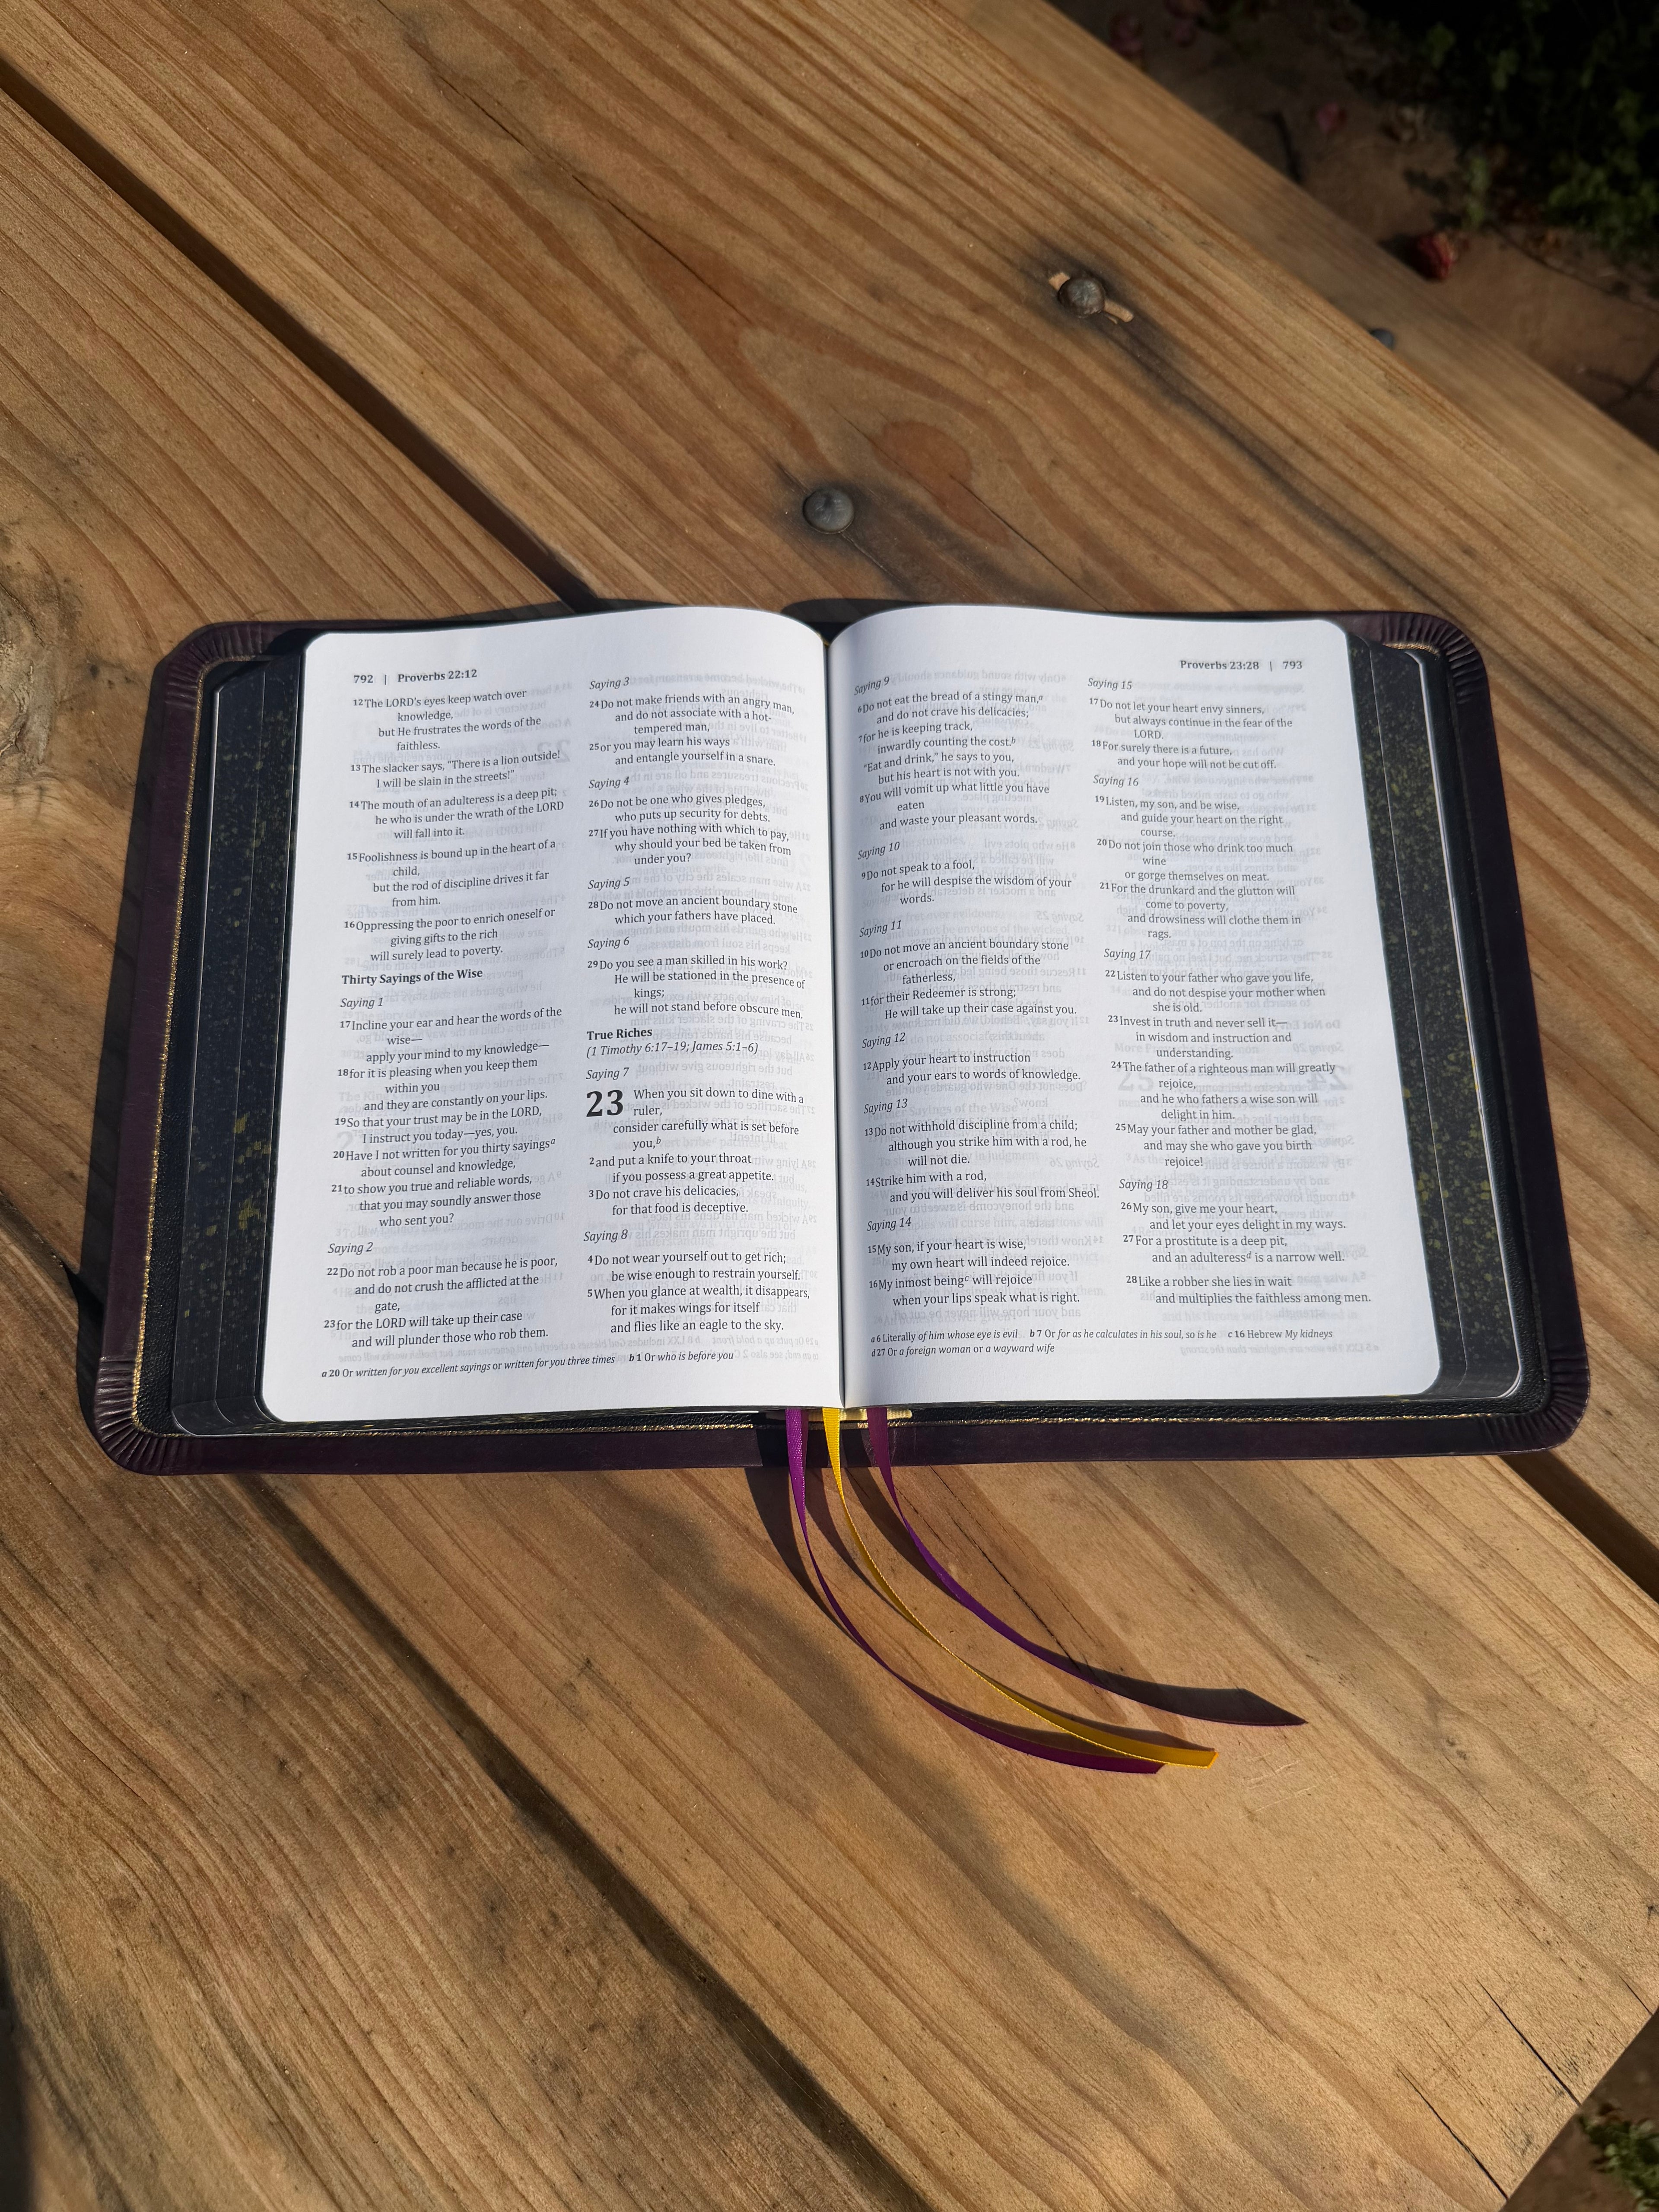 792 | Proverbs 22:12
12The LORD's eyes keep watch over
knowledge,
but He frustrates the words of the
faithless.
13The slacker says, “There is a lion outside!
I will be slain in the streets!”
14The mouth of an adulteress is a deep pit;
he who is under the wrath of the LORD
will fall into it.
15Foolishness is bound up in the heart of a
child,
but the rod of discipline drives it far
from him.
16Oppressing the poor to enrich oneself or
giving gifts to the rich
will surely lead to poverty.
Thirty Sayings of the Wise
Saying 1
17Incline your ear and hear the words of the
wise—
apply your mind to my knowledge—
18for it is pleasing when you keep them
within you
and they are constantly on your lips.
19So that your trust may be in the LORD,
I instruct you today—yes, you.
20Have I not written for you thirty sayingsa
about counsel and knowledge,
21to show you true and reliable words,
that you may soundly answer those
who sent you?
Saying 2
22Do not rob a poor man because he is poor,
and do not crush the afflicted at the
gate,
23for the LORD will take up their case
and will plunder those who rob them.
Saying 3
24Do not make friends with an angry man,
and do not associate with a hot-
tempered man,
25or you may learn his ways
and entangle yourself in a snare.
Saying 4
26Do not be one who gives pledges,
who puts up security for debts.
27If you have nothing with which to pay,
why should your bed be taken from
under you?
Saying 5
28Do not move an ancient boundary stone
which your fathers have placed.
Saying 6
29Do you see a man skilled in his work?
He will be stationed in the presence of
kings;
he will not stand before obscure men.
True Riches
(1 Timothy 6:17–19; James 5:1–6)
Saying 7
23 When you sit down to dine with a
ruler,
consider carefully what is set before
you,b
2and put a knife to your throat
if you possess a great appetite.
3Do not crave his delicacies,
for that food is deceptive.
Saying 8
4Do not wear yourself out to get rich;
be wise enough to restrain yourself.
5When you glance at wealth, it disappears,
for it makes wings for itself
and flies like an eagle to the sky.
a 20 Or written for you excellent sayings or written for you three times b 1 Or who is before you
Proverbs 23:28 | 793
Saying 9
6Do not eat the bread of a stingy man,a
and do not crave his delicacies;
7for he is keeping track,
inwardly counting the cost.b
“Eat and drink,” he says to you,
but his heart is not with you.
8You will vomit up what little you have
eaten
and waste your pleasant words.
Saying 10
9Do not speak to a fool,
for he will despise the wisdom of your
words.
Saying 11
10Do not move an ancient boundary stone
or encroach on the fields of the
fatherless,
11for their Redeemer is strong;
He will take up their case against you.
Saying 12
12Apply your heart to instruction
and your ears to words of knowledge.
Saying 13
13Do not withhold discipline from a child;
although you strike him with a rod, he
will not die.
14Strike him with a rod,
and you will deliver his soul from Sheol.
Saying 14
15My son, if your heart is wise,
my own heart will indeed rejoice.
16My inmost beingc will rejoice
when your lips speak what is right.
Saying 15
17Do not let your heart envy sinners,
but always continue in the fear of the
LORD.
18For surely there is a future,
and your hope will not be cut off.
Saying 16
19Listen, my son, and be wise,
and guide your heart on the right
course.
20Do not join those who drink too much
wine
or gorge themselves on meat.
21For the drunkard and the glutton will
come to poverty,
and drowsiness will clothe them in
rags.
Saying 17
22Listen to your father who gave you life,
and do not despise your mother when
she is old.
23Invest in truth and never sell it—
in wisdom and instruction and
understanding.
24The father of a righteous man will greatly
rejoice,
and he who fathers a wise son will
delight in him.
25May your father and mother be glad,
and may she who gave you birth
rejoice!
Saying 18
26My son, give me your heart,
and let your eyes delight in my ways.
27For a prostitute is a deep pit,
and an adulteressd is a narrow well.
28Like a robber she lies in wait
and multiplies the faithless among men.
a 6 Literally of him whose eye is evil b 7 Or for as he calculates in his soul, so is he c 16 Hebrew My kidneys
d 27 Or a foreign woman or a wayward wife